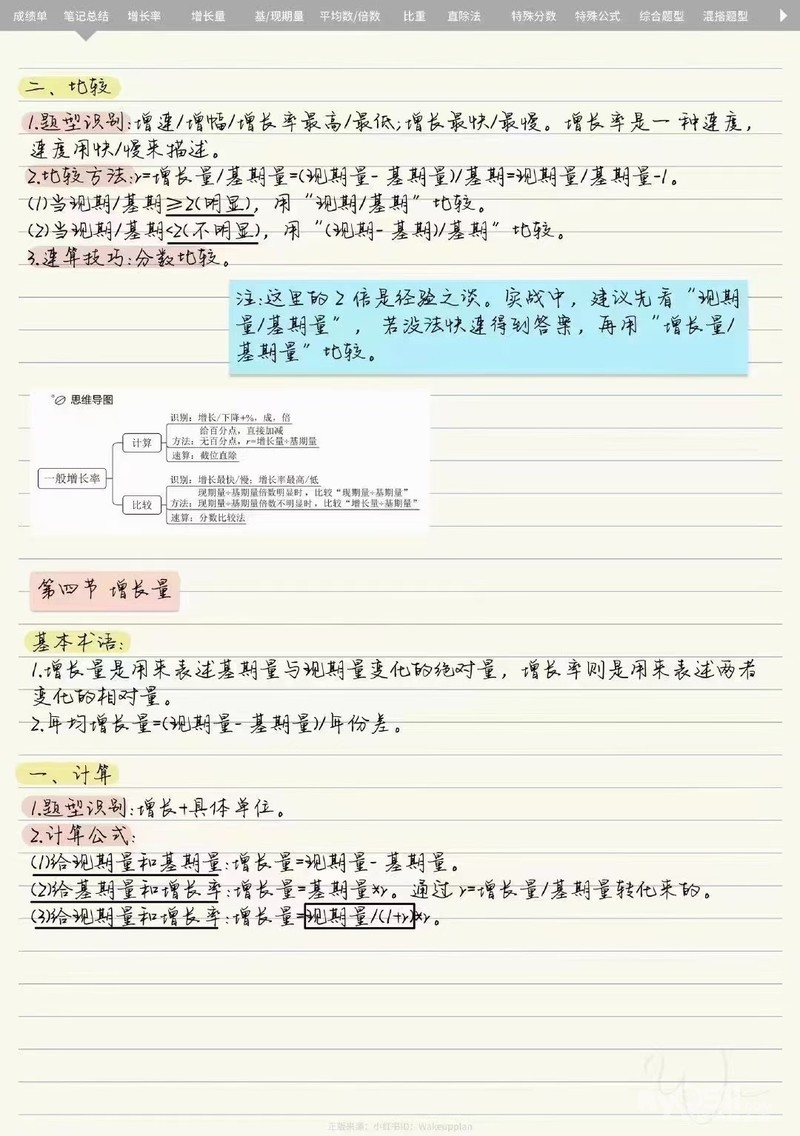 成绩单 笔记总结 增长率 增长量 基/现期量 平均数/倍数 比重 直除法 特殊分数 特殊公式 综合题型 混搭题型
二、比较
1.题型识别:增速/增幅/增长率最高/最低;增长最快/最慢。增长率是一种速度,
速度用快/慢来描述。
2.比较方法:r=增长量/基期量=(现期量-基期量)/基期=现期量/基期量-1。
(1)当现期/基期≥2(明显),用“现期/基期”比较。
(2)当现期/基期<2(不明显),用“(现期-基期)/基期”比较。
3.速算技巧:分数比较。
注:这里的2倍是经验之谈。实战中,建议先看“现期
量/基期量”,若没法快速得到答案,再用“增长量/
基期量”比较。
思维导图
一般增长率
计算
识别:增长/下降+%,成,倍
给百分点,直接加减
方法:无百分点,r=增长量÷基期量
速算:截位直除
比较
识别:增长最快/慢;增长率最高/低
现期量÷基期量倍数明显时,比较“现期量÷基期量”
方法:现期量÷基期量倍数不明显时,比较“增长量÷基期量”
速算:分数比较法
第四节 增长量
基本术语:
1.增长量是用来表述基期量与现期量变化的绝对量,增长率则是用来表述两者
变化的相对量。
2.年均增长量=(现期量-基期量)/年份差。
一、计算
1.题型识别:增长+具体单位。
2.计算公式:
(1)给现期量和基期量:增长量=现期量-基期量。
(2)给基期量和增长率:增长量=基期量*r。通过r=增长量/基期量转化来的。
(3)给现期量和增长率:增长量=现期量/(1+r)*r。
正版来源:小红书ID:Wakeupplan